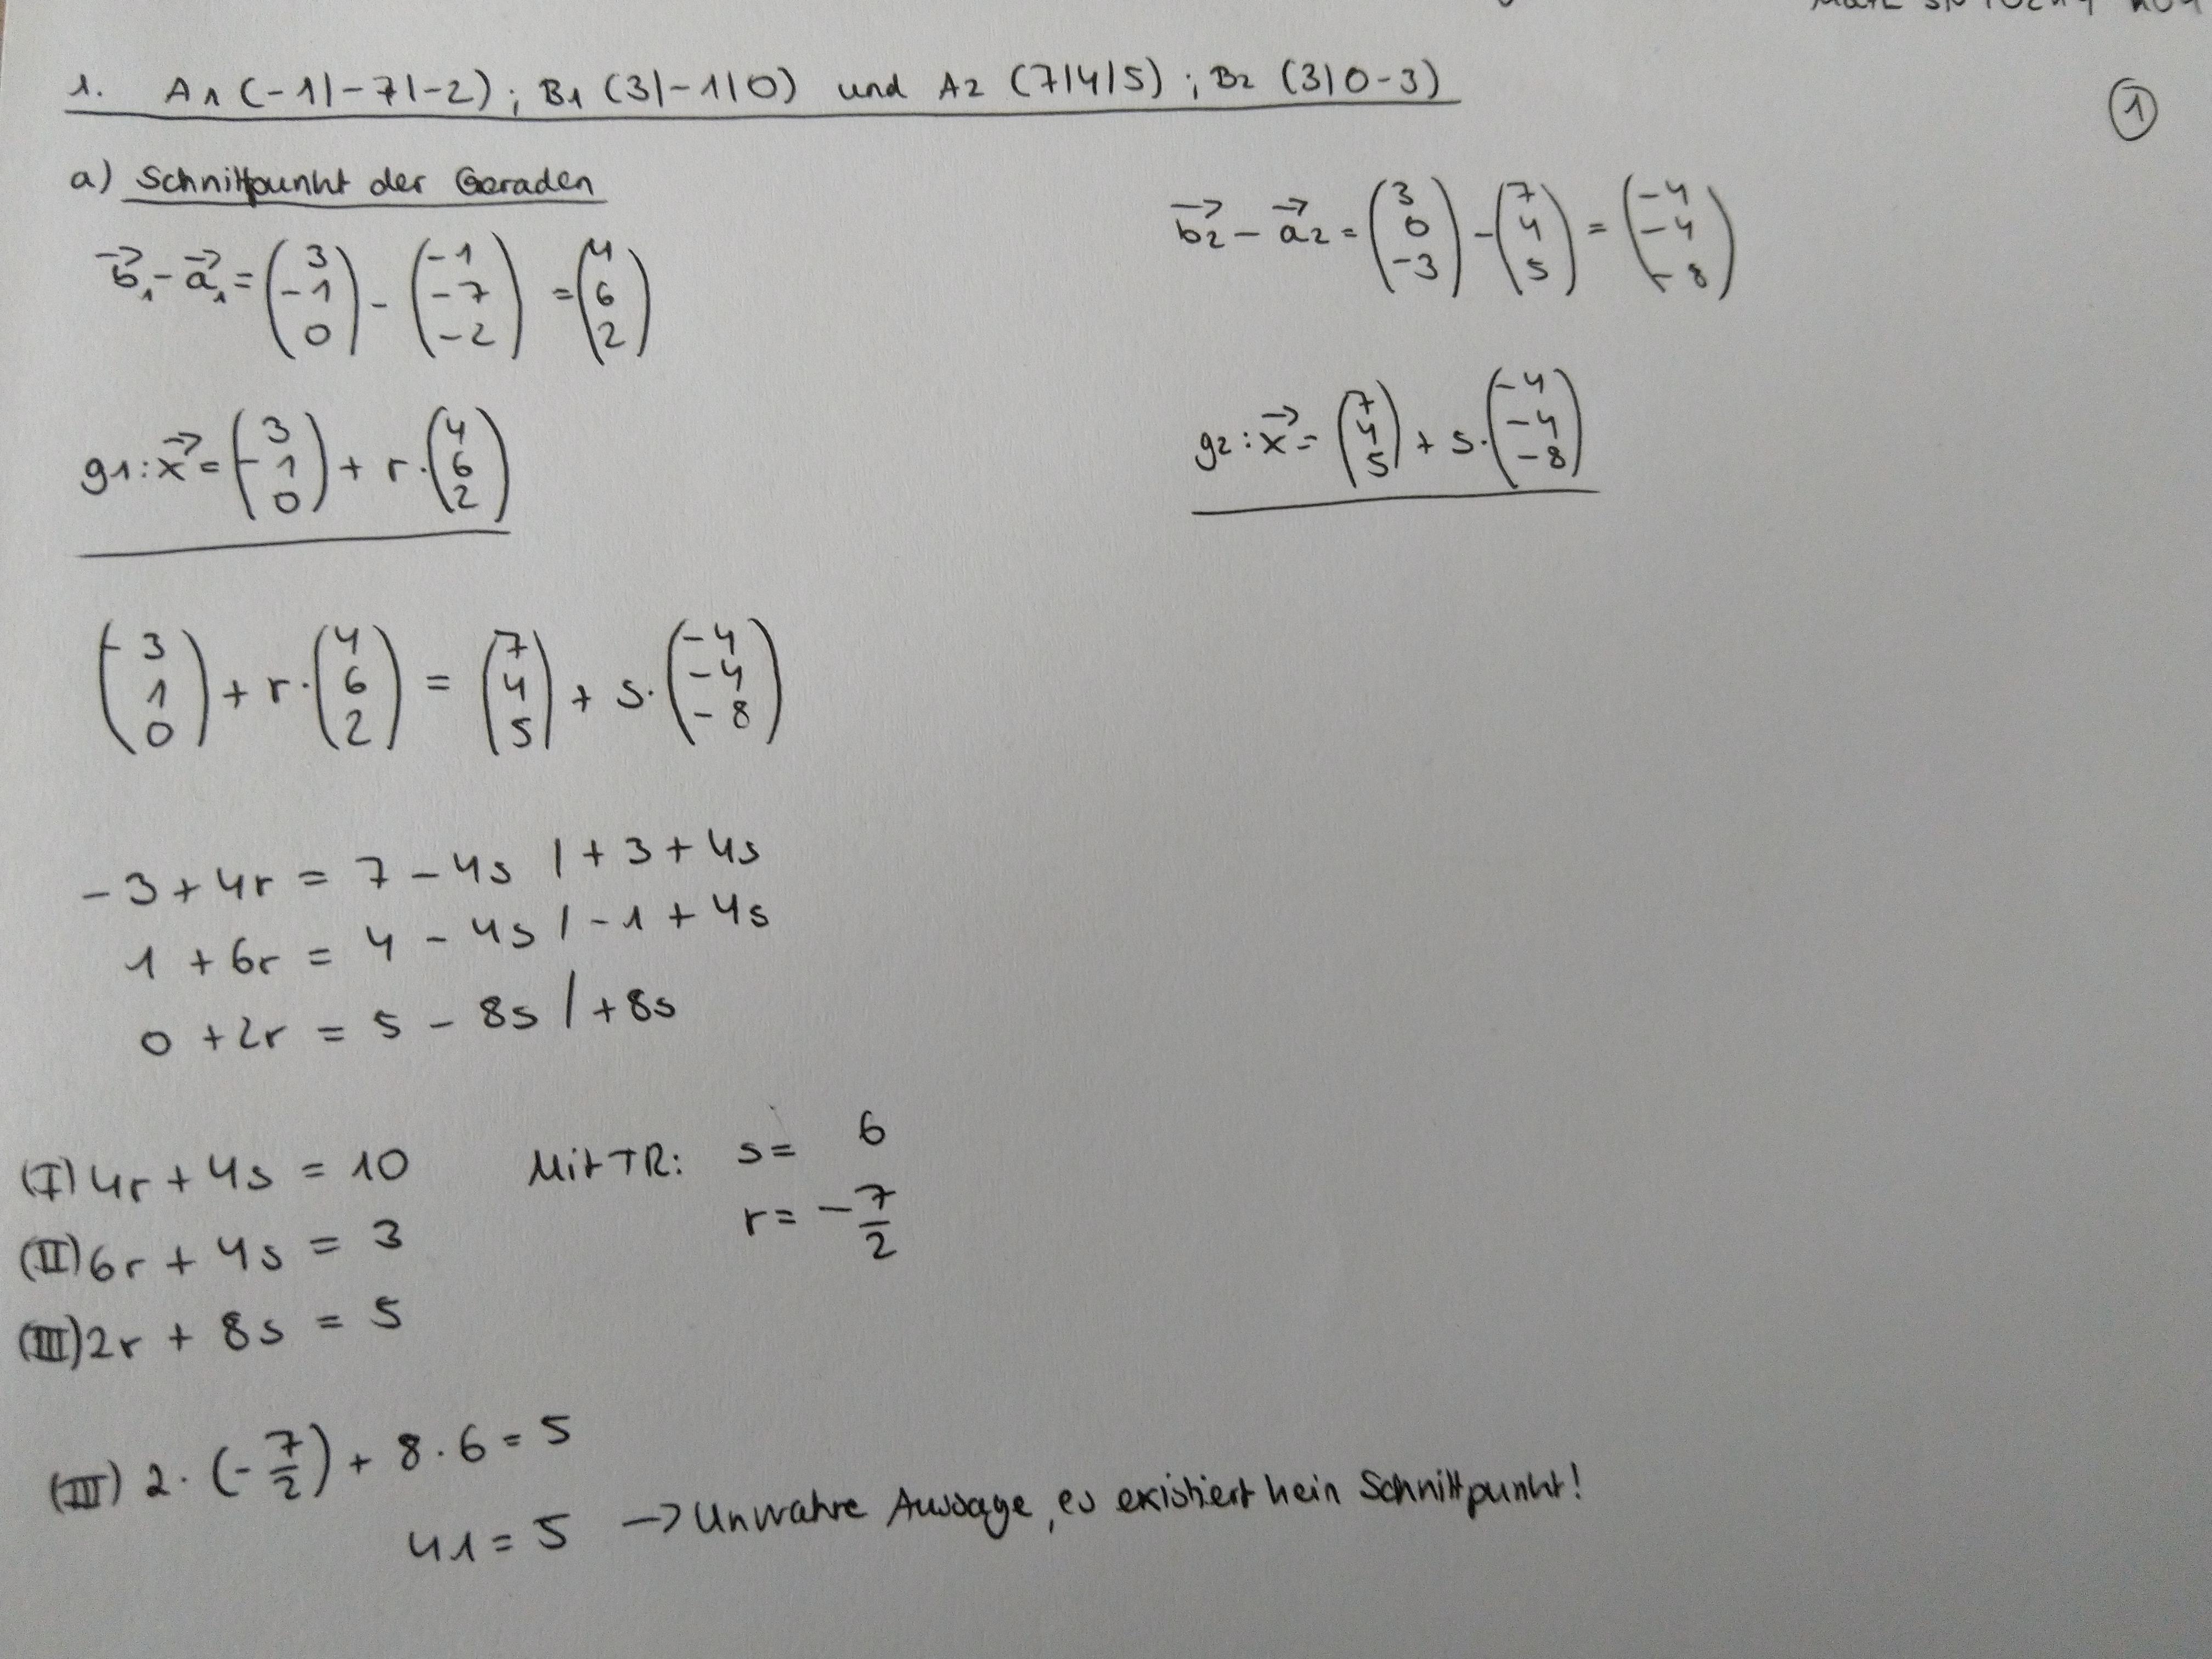 1. A1 (-1|-7|-2); B1 (3|-1|0) und A2 (7|4|5); B2 (3|0-3)
1
a) Schnittpunkt der Geraden
b1 - a1 = (3 -1 0) - (-1 -7 -2) = (4 6 2)
b2 - a2 = (3 0 -3) - (7 4 5) = (-4 -4 -8)
g1: x = (3 -1 0) + r · (4 6 2)
g2: x = (7 4 5) + s · (-4 -4 -8)
(-3 1 0) + r · (4 6 2) = (7 4 5) + s · (-4 -4 -8)
-3 + 4r = 7 - 4s | + 3 + 4s
1 + 6r = 4 - 4s | - 1 + 4s
0 + 2r = 5 - 8s | + 8s
(I) 4r + 4s = 10
Mit TR: s = 6
r = -7/2
(II) 6r + 4s = 3
(III) 2r + 8s = 5
(III) 2 · (-7/2) + 8 · 6 = 5
41 = 5 → Unwahre Aussage, es existiert kein Schnittpunkt!